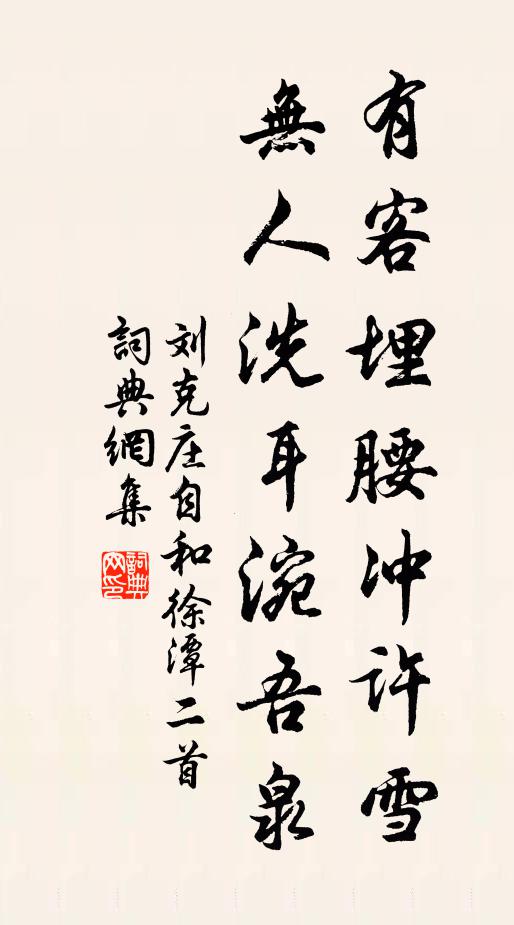 有客埋腰冲许雪
無人洗耳涴吾泉
刘克庄自和徐潭二首
詞典網集
詞典网印